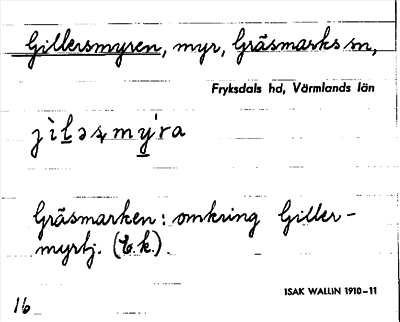 Gillersmyren, myr, Gräsmarks sn,
Fryksdals hd, Värmlands län
Gräsmarken: omkring Giller-
myrtj. (E.k.).
ISAK WALLIN 1910–11
16